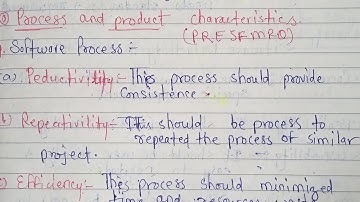 Process and product characteristics.
(PRESFMRO)
Software Process :-
(a) Peductivility :- This process should provide
consistence.
b) Repeativility :- This should be process to
repeated the process of similar
project.
c) Efficiency :- This process should minimized
time and resources